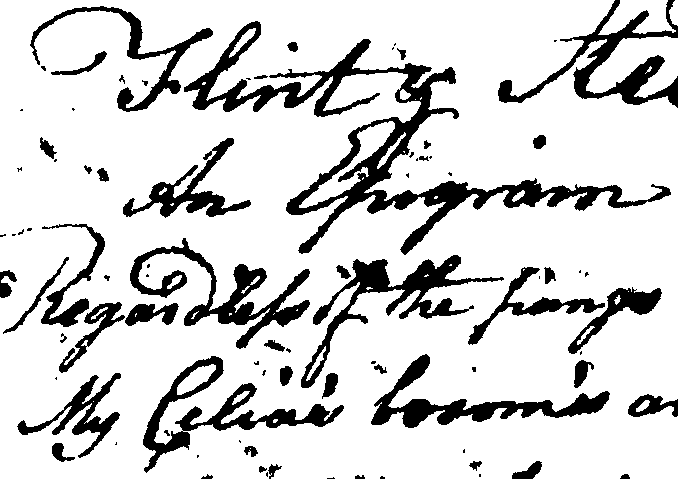 Flint & Stee
An Epigram
Regardless of the pangs
My Celia's bosom's a